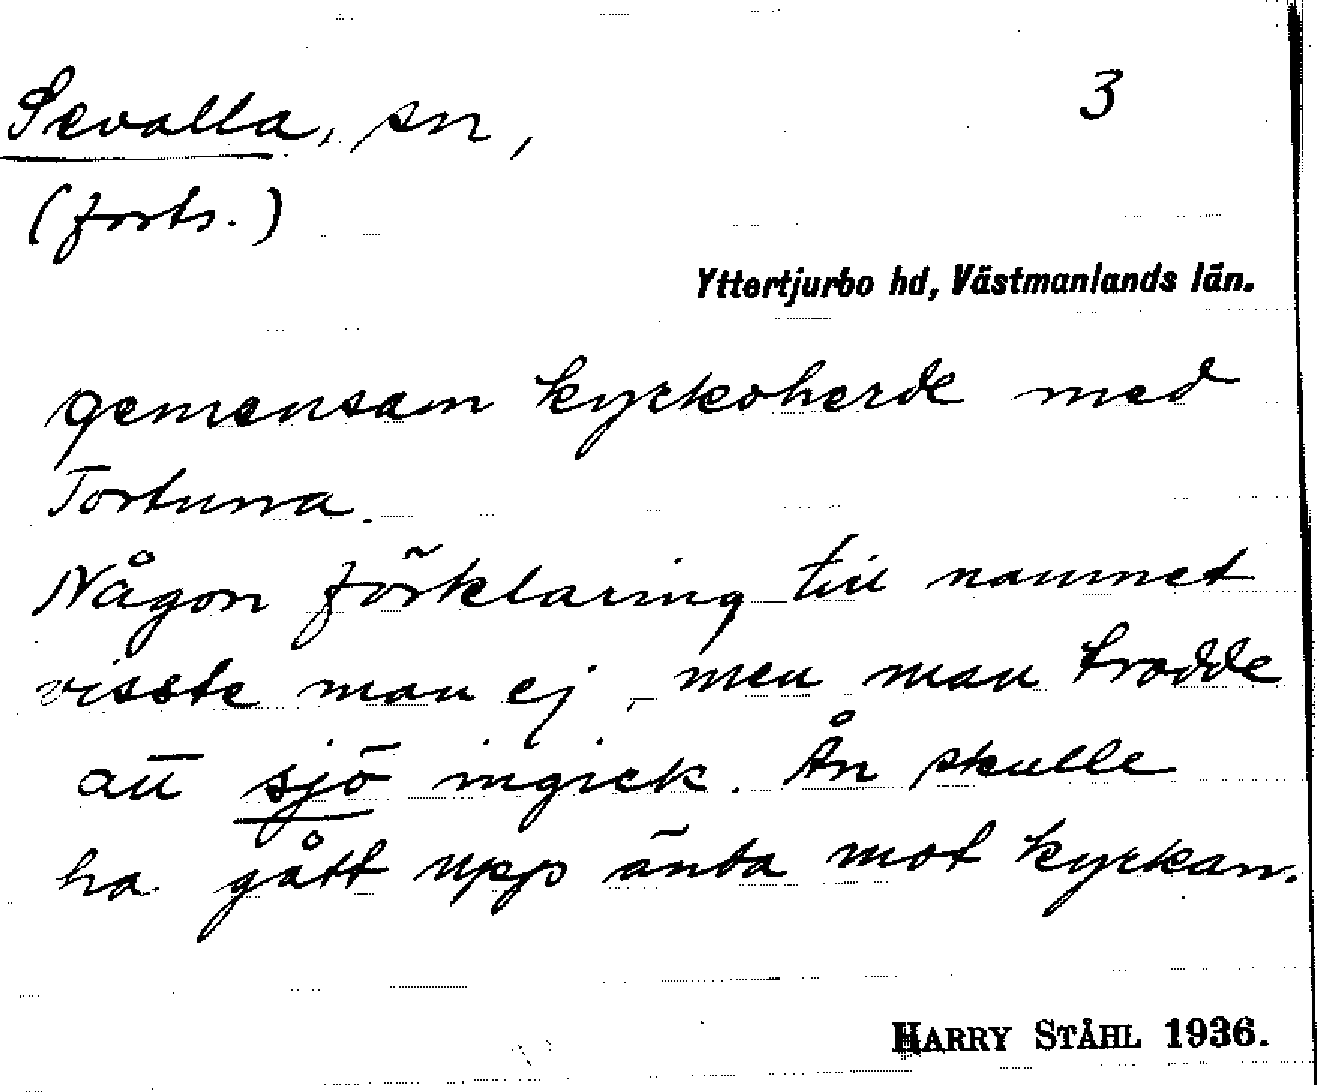 Sevalla, sn,
3
(forts.)
Yttertjurbo hd, Västmanlands län.
gemensam kyrkoherde med
Tortuna.
Någon förklaring till namnet
visste man ej, men man trodde
att sjö ingick. Ån skulle
ha gått upp ända mot kyrkan.
HARRY STÅHL 1936.